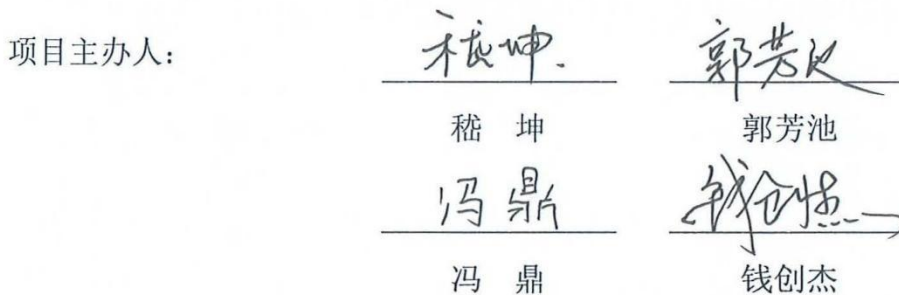 项目主办人：
嵇坤. 郭芳池
嵇 坤 郭芳池
冯鼎 钱创杰
冯 鼎 钱创杰